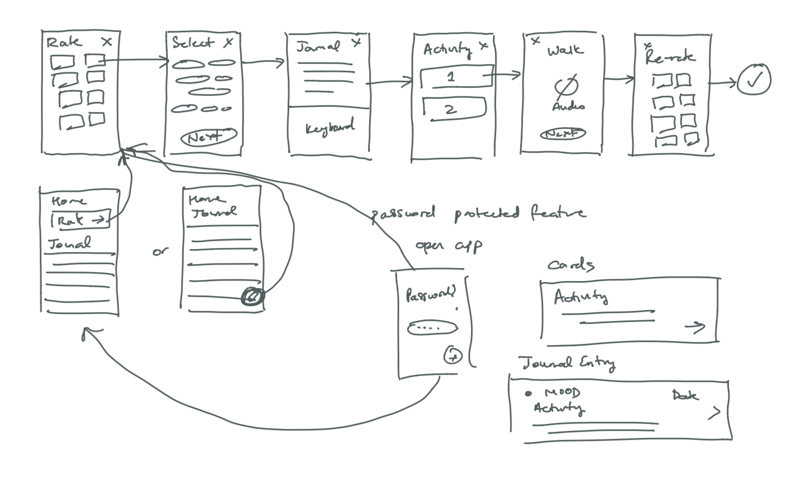 Rate X
Select X
Journal X
Activity X
X
Walk
X
Re-rate
1
2
Audio
Next
Keyboard
Next
Home
Rate →
Journal
or
Home
Journal
password protected feature
open app
Password?
....
Cards
Activity
Journal Entry
• MOOD Date
Activity